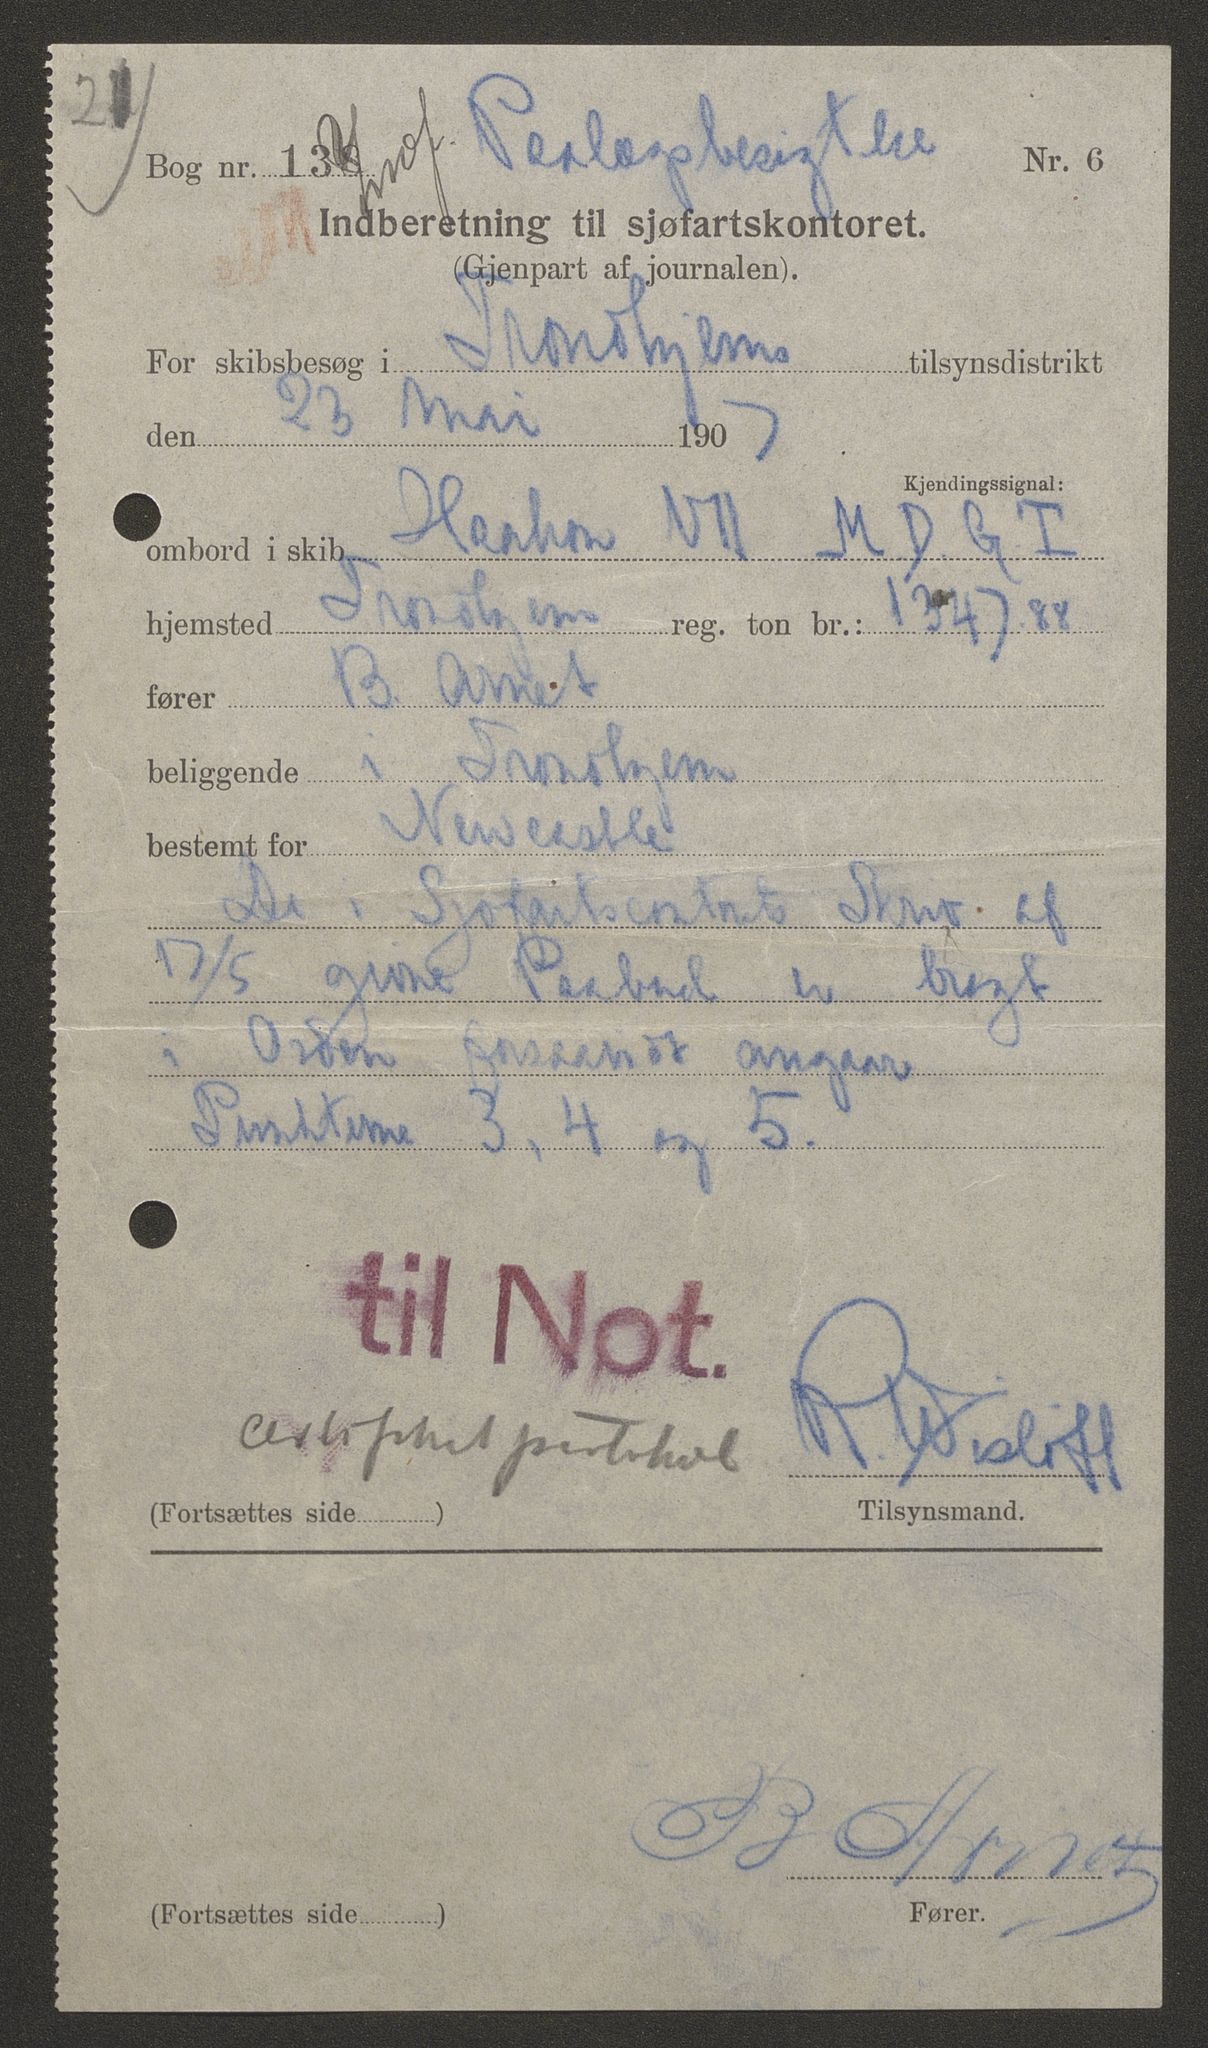 21
Bog nr. 136 Prof. Nr. 6
Indberetning til sjøfartskontoret.
(Gjenpart af journalen).
For skibsbesøg i Trondhjems tilsynsdistrikt
den 23 Mai 1907
Kjendingssignal:
ombord i skib Haakon VII M. D. G. T
hjemsted Trondhjem reg. ton br.: 1347.88
fører B. Arnet
beliggende i Trondhjem
bestemt for Newcastle
De i Sjøfartscontorets Skriv. af
17/5 givne Paabud er bragt
i Orden forsaavidt angaar
Punkterne 3, 4 og 5.
til Not.
protokol R. Wisløff
(Fortsættes side ) Tilsynsmand.
B Arnet
(Fortsættes side ) Fører.